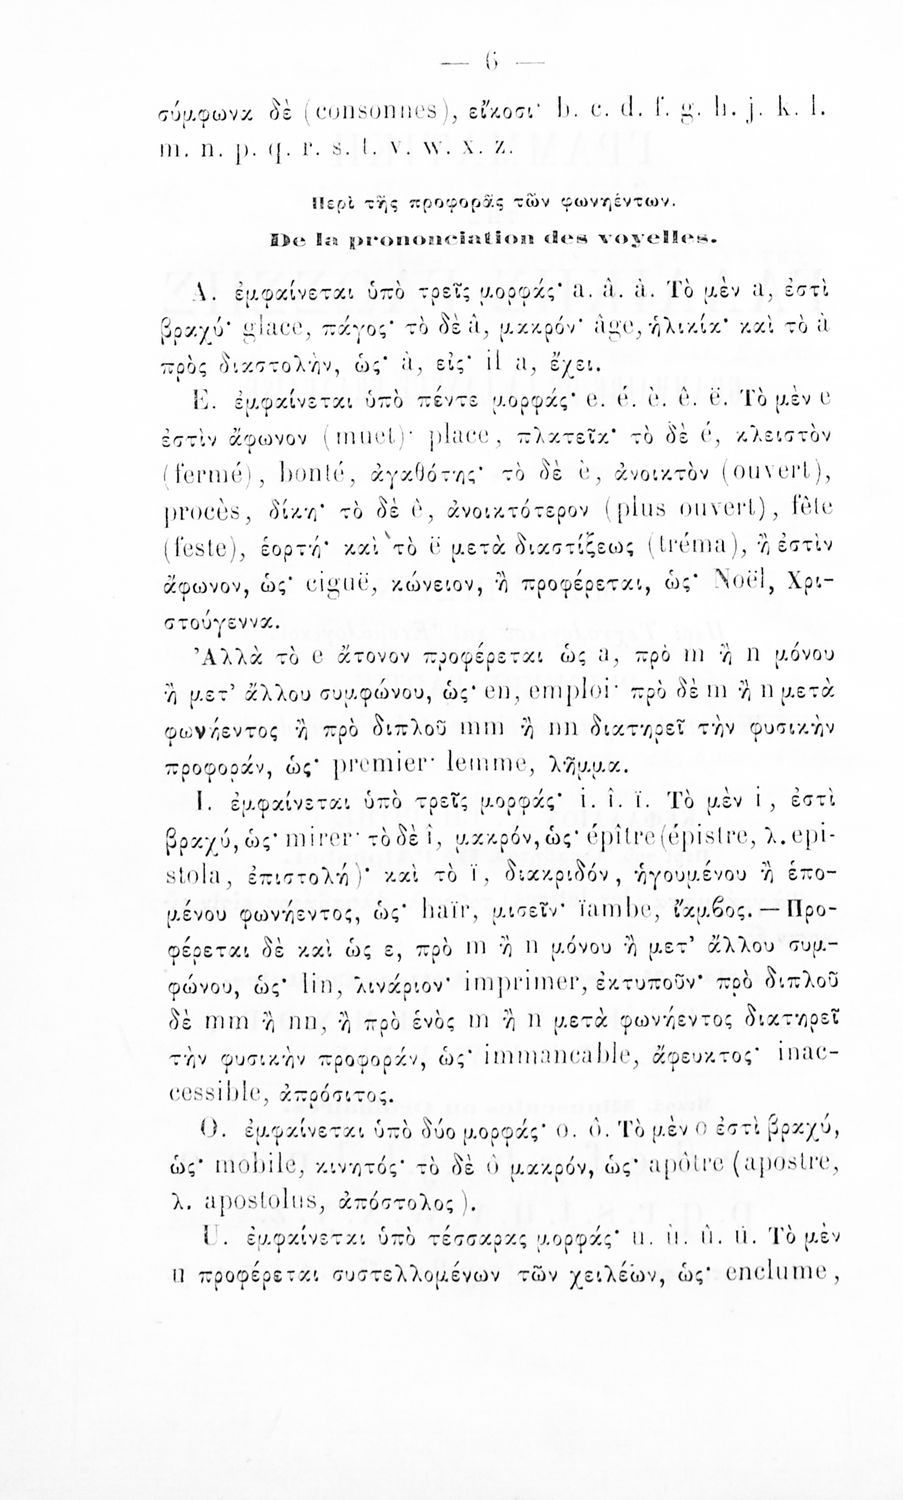 — 6 —
σύμφωνα δὲ (consonnes), εἴκοσι· b. c. d. f. g. h. j. k. l.
m. n. p. q. r. s. t. v. w. x. z.
Περὶ τῆς προφορᾶς τῶν φωνηέντων.
De la prononciation des voyelles.
A. ἐμφαίνεται ὑπὸ τρεῖς μορφάς· a. à. â. Τὸ μὲν a, ἐστὶ
βραχύ· glace, πάγος· τὸ δὲ â, μακρόν· âge, ἡλικία· καὶ τὸ à
πρὸς διαστολὴν, ὡς· à, εἰς· il a, ἔχει.
E. ἐμφαίνεται ὑπὸ πέντε μορφάς· e. é. è. ê. ë. Τὸ μὲν e
ἐστὶν ἄφωνον (muet)· place, πλατεῖα· τὸ δὲ é, κλειστὸν
(fermé), bonté, ἀγαθότης· τὸ δὲ è, ἀνοικτὸν (ouvert),
procès, δίκη· τὸ δὲ ê, ἀνοικτότερον (plus ouvert), fête
(feste), ἑορτή· καὶ τὸ ë μετὰ διαστίξεως (tréma), ἢ ἐστὶν
ἄφωνον, ὡς· ciguë, κώνειον, ἢ προφέρεται, ὡς· Noël, Χρι-
στούγεννα.
Ἀλλὰ τὸ e ἄτονον προφέρεται ὡς a, πρὸ m ἢ n μόνου
ἢ μετ’ ἄλλου συμφώνου, ὡς· en, emploi· πρὸ δὲ m ἢ n μετὰ
φωνήεντος ἢ πρὸ διπλοῦ mm ἢ nn διατηρεῖ τὴν φυσικὴν
προφοράν, ὡς· premier· lemme, λῆμμα.
I. ἐμφαίνεται ὑπὸ τρεῖς μορφάς· i. î. ï. Τὸ μὲν i, ἐστὶ
βραχύ, ὡς· mirer· τὸ δὲ î, μακρόν, ὡς· épître (épistre, λ. epi-
stola, ἐπιστολή)· καὶ τὸ ï, διακριδόν, ἡγουμένου ἢ ἑπο-
μένου φωνήεντος, ὡς· haïr, μισεῖν· ïambe, ἴαμβος. — Προ-
φέρεται δὲ καὶ ὡς ε, πρὸ m ἢ n μόνου ἢ μετ’ ἄλλου συμ-
φώνου, ὡς· lin, λινάριον· imprimer, ἐκτυποῦν· πρὸ διπλοῦ
δὲ mm ἢ nn, ἢ πρὸ ἑνὸς m ἢ n μετὰ φωνήεντος διατηρεῖ
τὴν φυσικὴν προφοράν, ὡς· immancable, ἄφευκτος· inac-
cessible, ἀπρόσιτος.
O. ἐμφαίνεται ὑπὸ δύο μορφάς· o. ô. Τὸ μὲν o ἐστὶ βραχύ,
ὡς· mobile, κινητός· τὸ δὲ ô μακρόν, ὡς· apôtre (apostre,
λ. apostolus, ἀπόστολος).
U. ἐμφαίνεται ὑπὸ τέσσαρας μορφάς· u. ù. û. ü. Τὸ μὲν
u προφέρεται συστελλομένων τῶν χειλέων, ὡς· enclume,